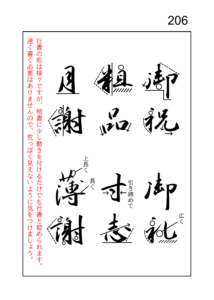 206
行書の形は様々ですが、楷書に少し動きを付けるだけでも行書と認められます。
速く書く必要はありませんので、荒っぽく見えないように気をつけましょう。
御祝
御礼
粗品
寸志
月謝
薄謝
広く
引き締めて
長く
上長く